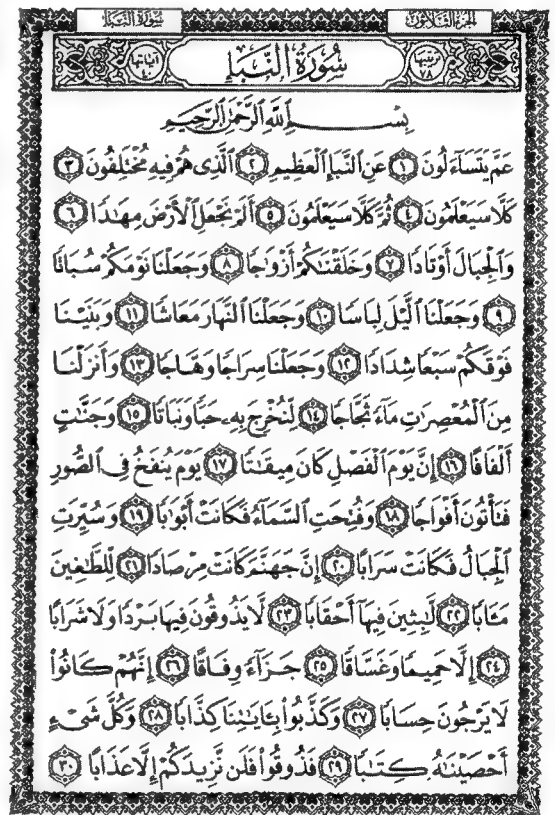 الجزء الثلاثون سورة النبإ
ترتيبها ٧٨ سُورَةُ النَّبَإِ آياتها ٤٠
بِسْمِ ٱللَّهِ ٱلرَّحْمَٰنِ ٱلرَّحِيمِ
عَمَّ يَتَسَآءَلُونَ ١ عَنِ ٱلنَّبَإِ ٱلْعَظِيمِ ٢ ٱلَّذِى هُمْ فِيهِ مُخْتَلِفُونَ ٣
كَلَّا سَيَعْلَمُونَ ٤ ثُمَّ كَلَّا سَيَعْلَمُونَ ٥ أَلَمْ نَجْعَلِ ٱلْأَرْضَ مِهَٰدًا ٦
وَٱلْجِبَالَ أَوْتَادًا ٧ وَخَلَقْنَٰكُمْ أَزْوَٰجًا ٨ وَجَعَلْنَا نَوْمَكُمْ سُبَاتًا
٩ وَجَعَلْنَا ٱلَّيْلَ لِبَاسًا ١٠ وَجَعَلْنَا ٱلنَّهَارَ مَعَاشًا ١١ وَبَنَيْنَا
فَوْقَكُمْ سَبْعًا شِدَادًا ١٢ وَجَعَلْنَا سِرَاجًا وَهَّاجًا ١٣ وَأَنزَلْنَا
مِنَ ٱلْمُعْصِرَٰتِ مَآءً ثَجَّاجًا ١٤ لِّنُخْرِجَ بِهِۦ حَبًّا وَنَبَاتًا ١٥ وَجَنَّٰتٍ
أَلْفَافًا ١٦ إِنَّ يَوْمَ ٱلْفَصْلِ كَانَ مِيقَٰتًا ١٧ يَوْمَ يُنفَخُ فِى ٱلصُّورِ
فَتَأْتُونَ أَفْوَاجًا ١٨ وَفُتِحَتِ ٱلسَّمَآءُ فَكَانَتْ أَبْوَٰبًا ١٩ وَسُيِّرَتِ
ٱلْجِبَالُ فَكَانَتْ سَرَابًا ٢٠ إِنَّ جَهَنَّمَ كَانَتْ مِرْصَادًا ٢١ لِّلطَّٰغِينَ
مَـَٔابًا ٢٢ لَّٰبِثِينَ فِيهَآ أَحْقَابًا ٢٣ لَّا يَذُوقُونَ فِيهَا بَرْدًا وَلَا شَرَابًا
٢٤ إِلَّا حَمِيمًا وَغَسَّاقًا ٢٥ جَزَآءً وِفَاقًا ٢٦ إِنَّهُمْ كَانُوا۟
لَا يَرْجُونَ حِسَابًا ٢٧ وَكَذَّبُوا۟ بِـَٔايَٰتِنَا كِذَّابًا ٢٨ وَكُلَّ شَىْءٍ
أَحْصَيْنَٰهُ كِتَٰبًا ٢٩ فَذُوقُوا۟ فَلَن نَّزِيدَكُمْ إِلَّا عَذَابًا ٣٠